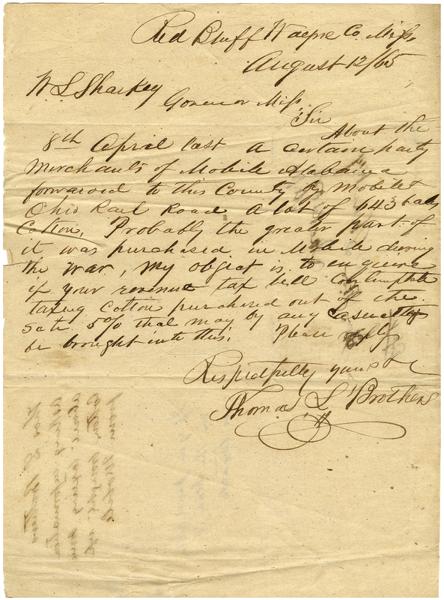 Red Bluff Waepse Co. Miss
August 12/65
W L Sharkey
Govenor Miss
Sir
About the
8th April last a certain party
Merchants of Mobile Alabama
forwarded to this County by Mobile &
Ohio Rail Road a lot of 643 bales
Cotton, Probably the greater part of
it was purchased in Mobile during
the war, My object is to enquire
if your revenue tax bill contemplate
taxing cotton purchased out of the
State 5% that may by any casuelty
be brought into this. Please reply
Respectfully yours &c
Thomas L Brothers